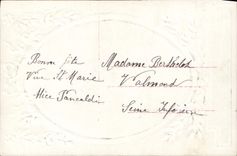 Bonne fête
Vive Ste Marie
Alice Pancaldi
Madame Berthelot
Valmond
Seine Infére